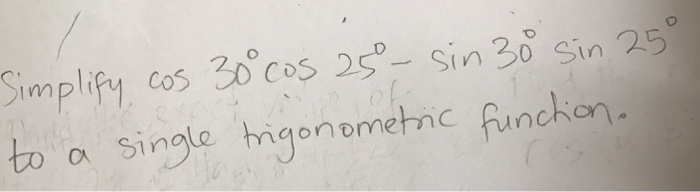 Simplify cos 30° cos 25° - sin 30° sin 25°
to a single trigonometric function.